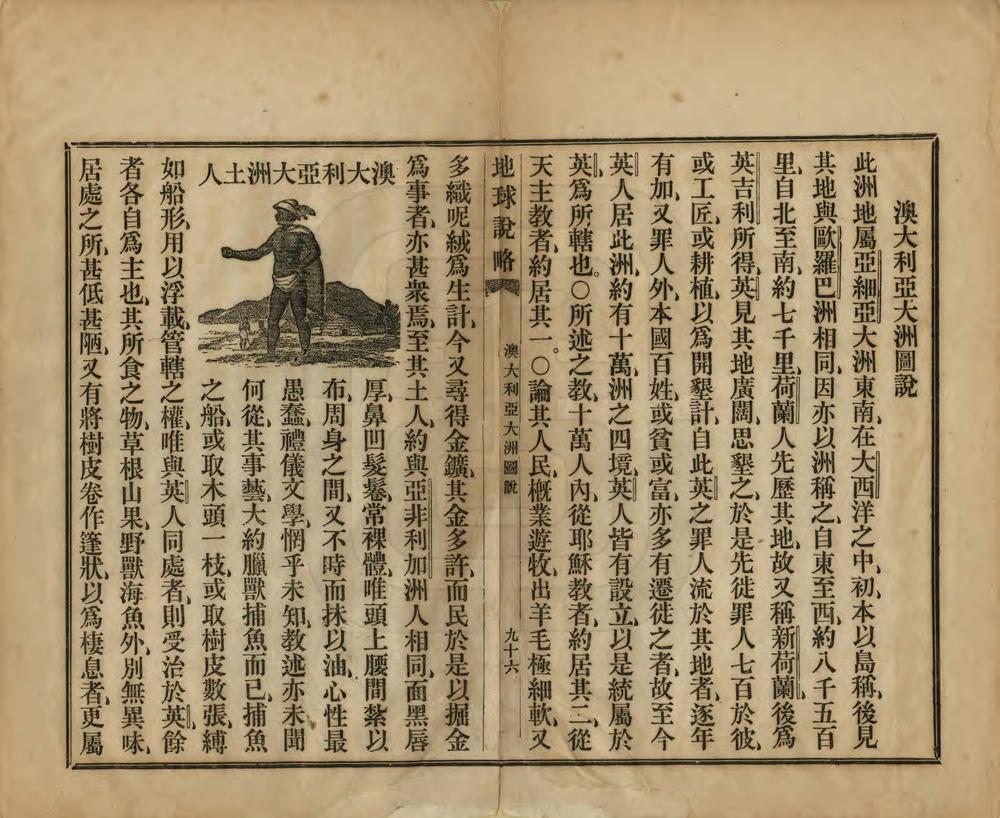 澳大利亞大洲圖說
此洲地屬亞細亞大洲東南、在大西洋之中、初、本以島稱、後見
其地與歐羅巴洲相同、因亦以洲稱之、自東至西、約八千五百
里、自北至南、約七千里、荷蘭人先歷其地、故又稱新荷蘭、後爲
英吉利所得、英見其地廣闊、思墾之、於是先徙罪人七百於彼、
或工匠、或耕植、以爲開墾計、自此英之罪人流於其地者、逐年
有加、又罪人外、本國百姓、或貧或富、亦多有遷徙之者、故至今
英人居此洲、約有十萬、洲之四境、英人皆有設立、以是統屬於
英、爲所轄也。○所述之教、十萬人內、從耶穌教者、約居其二、從
天主教者、約居其一。○論其人民、概業遊牧、出羊毛極細軟、又
地球說略
澳大利亞大洲圖說
九十六
多織呢絨爲生計、今又尋得金鑛、其金多許、而民於是以掘金
爲事者、亦甚衆焉、至其土人、約與亞非利加洲人相同、面黑唇
澳大利亞大洲土人
厚、鼻凹髮鬈、常裸體、唯頭上腰間紮以
布、周身之間、又不時而抹以油、心性最
愚蠢、禮儀文學、惘乎未知、教述亦未聞
何從、其事藝、大約臘獸捕魚而已、捕魚
之船、或取木頭一枝、或取樹皮數張、縛
如船形、用以浮載、管轄之權、唯與英人同處者、則受治於英、餘
者各自爲主也、其所食之物、草根山果、野獸海魚外、別無異味、
居處之所、甚低甚陋、又有將樹皮卷作篷狀、以爲棲息者、更屬